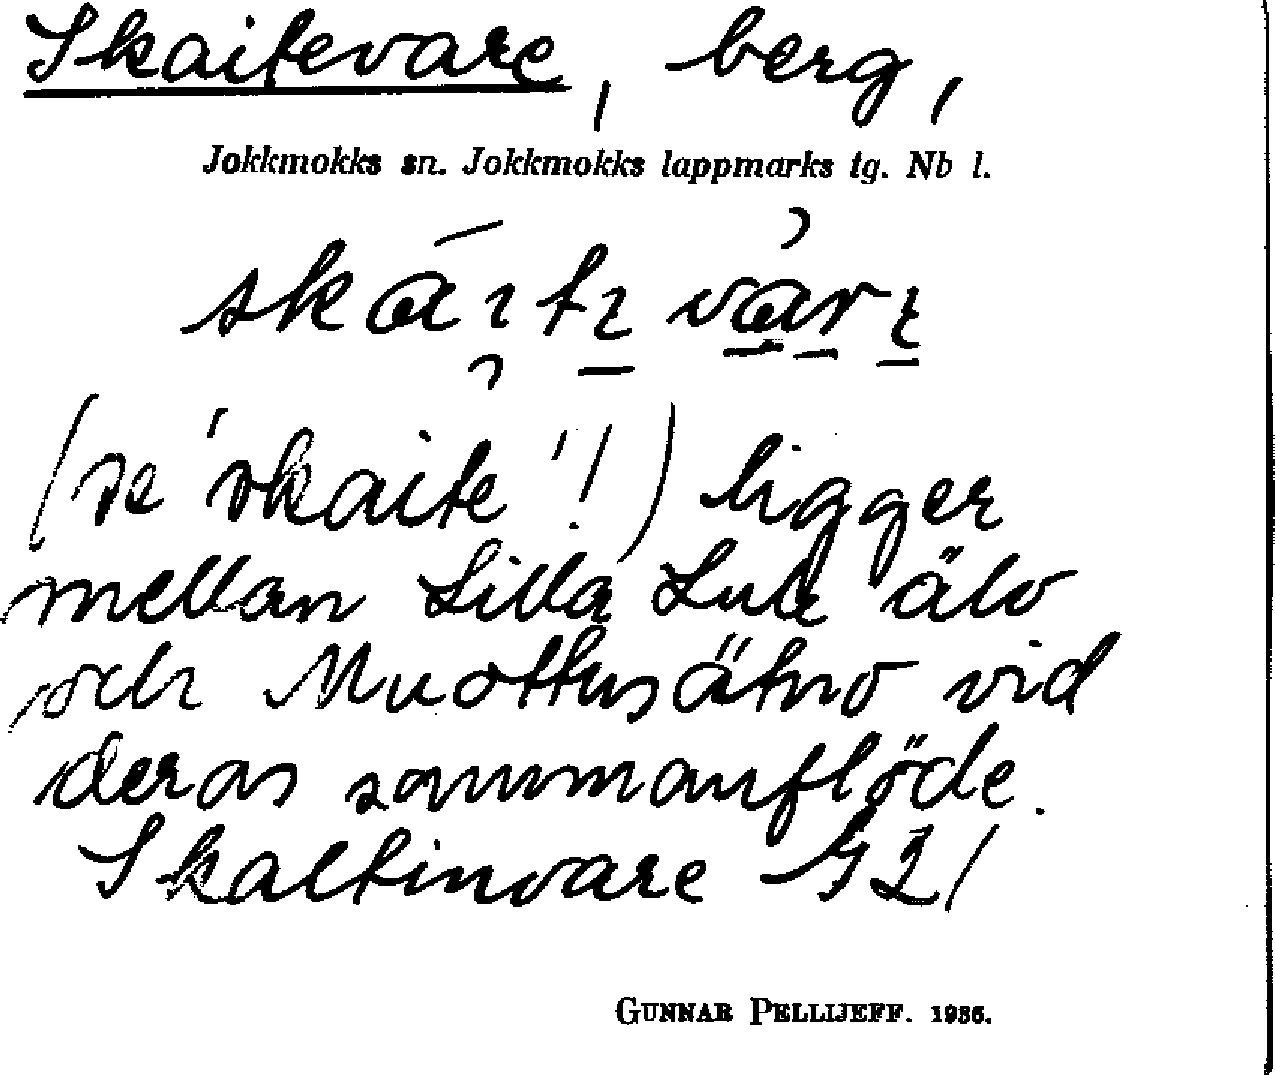 Skaitevare, berg,
Jokkmokks sn. Jokkmokks lappmarks tg. Nb l.
(se 'skaite'!) ligger
mellan Lilla Lule älv
och Muottusätno vid
deras sammanflöde.
Skaltinvare
GUNNAR PELLIJEFF. 1936.